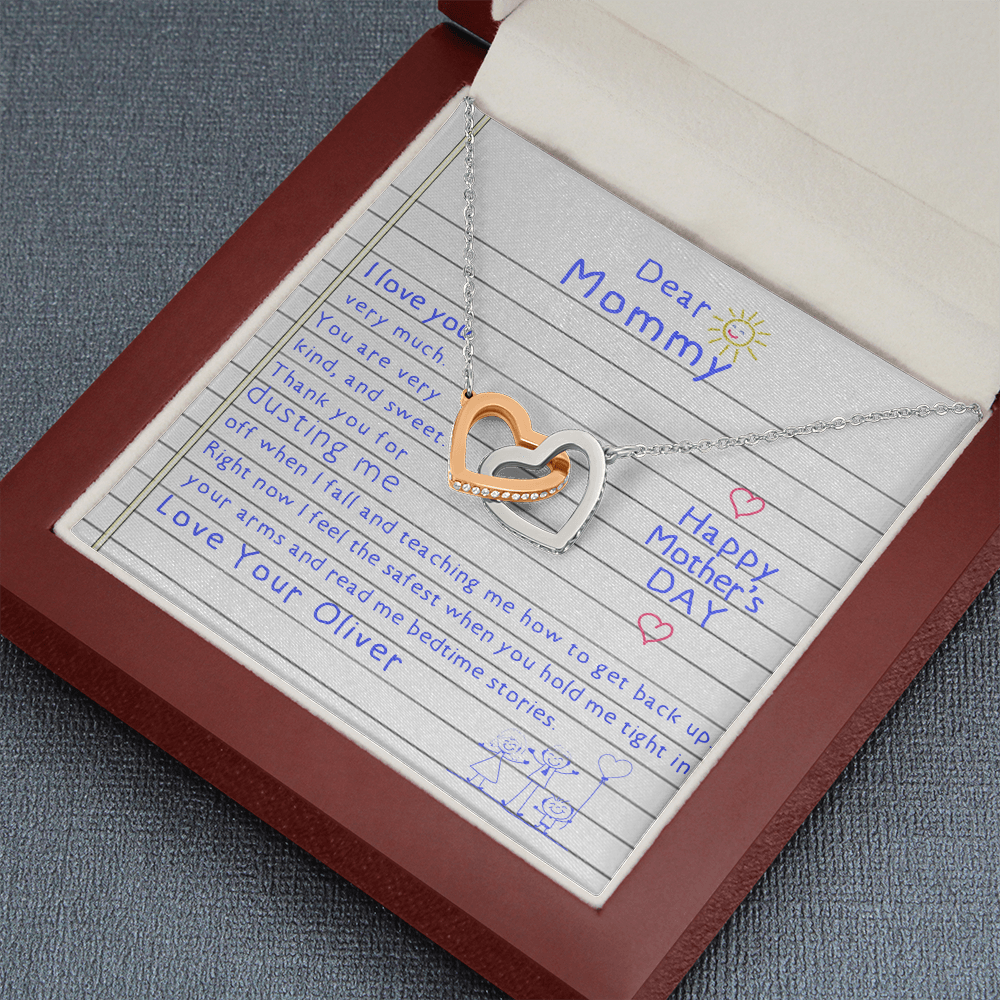 Dear
Mommy
I love you
very much.
You are very
kind, and sweet.
Thank you for
dusting me
off when I fall and teaching me how to get back up.
Right now I feel the safest when you hold me tight in
your arms and read me bedtime stories.
Love Your Oliver
Happy
Mother's
DAY